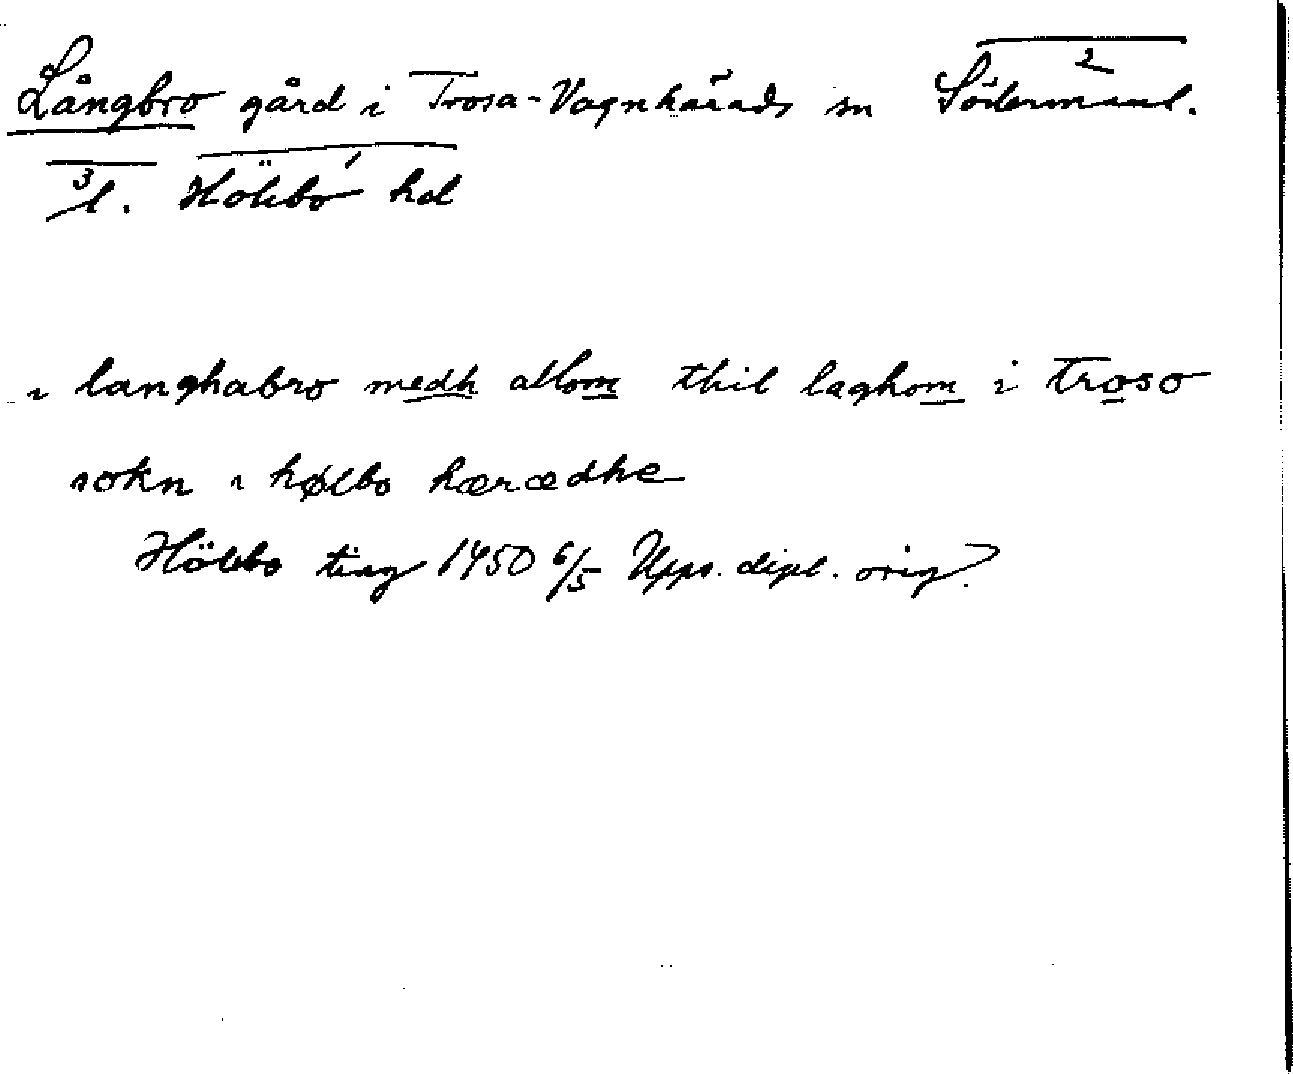 Långbro gård i Trosa-Vagnhärads sn Södermanl.
l. Hölebo hd
i langhabro medh allom thil laghom i troso
sokn i hølbo hæradhe
Hölebo ting 1450 6/5 Upps. dipl. orig.